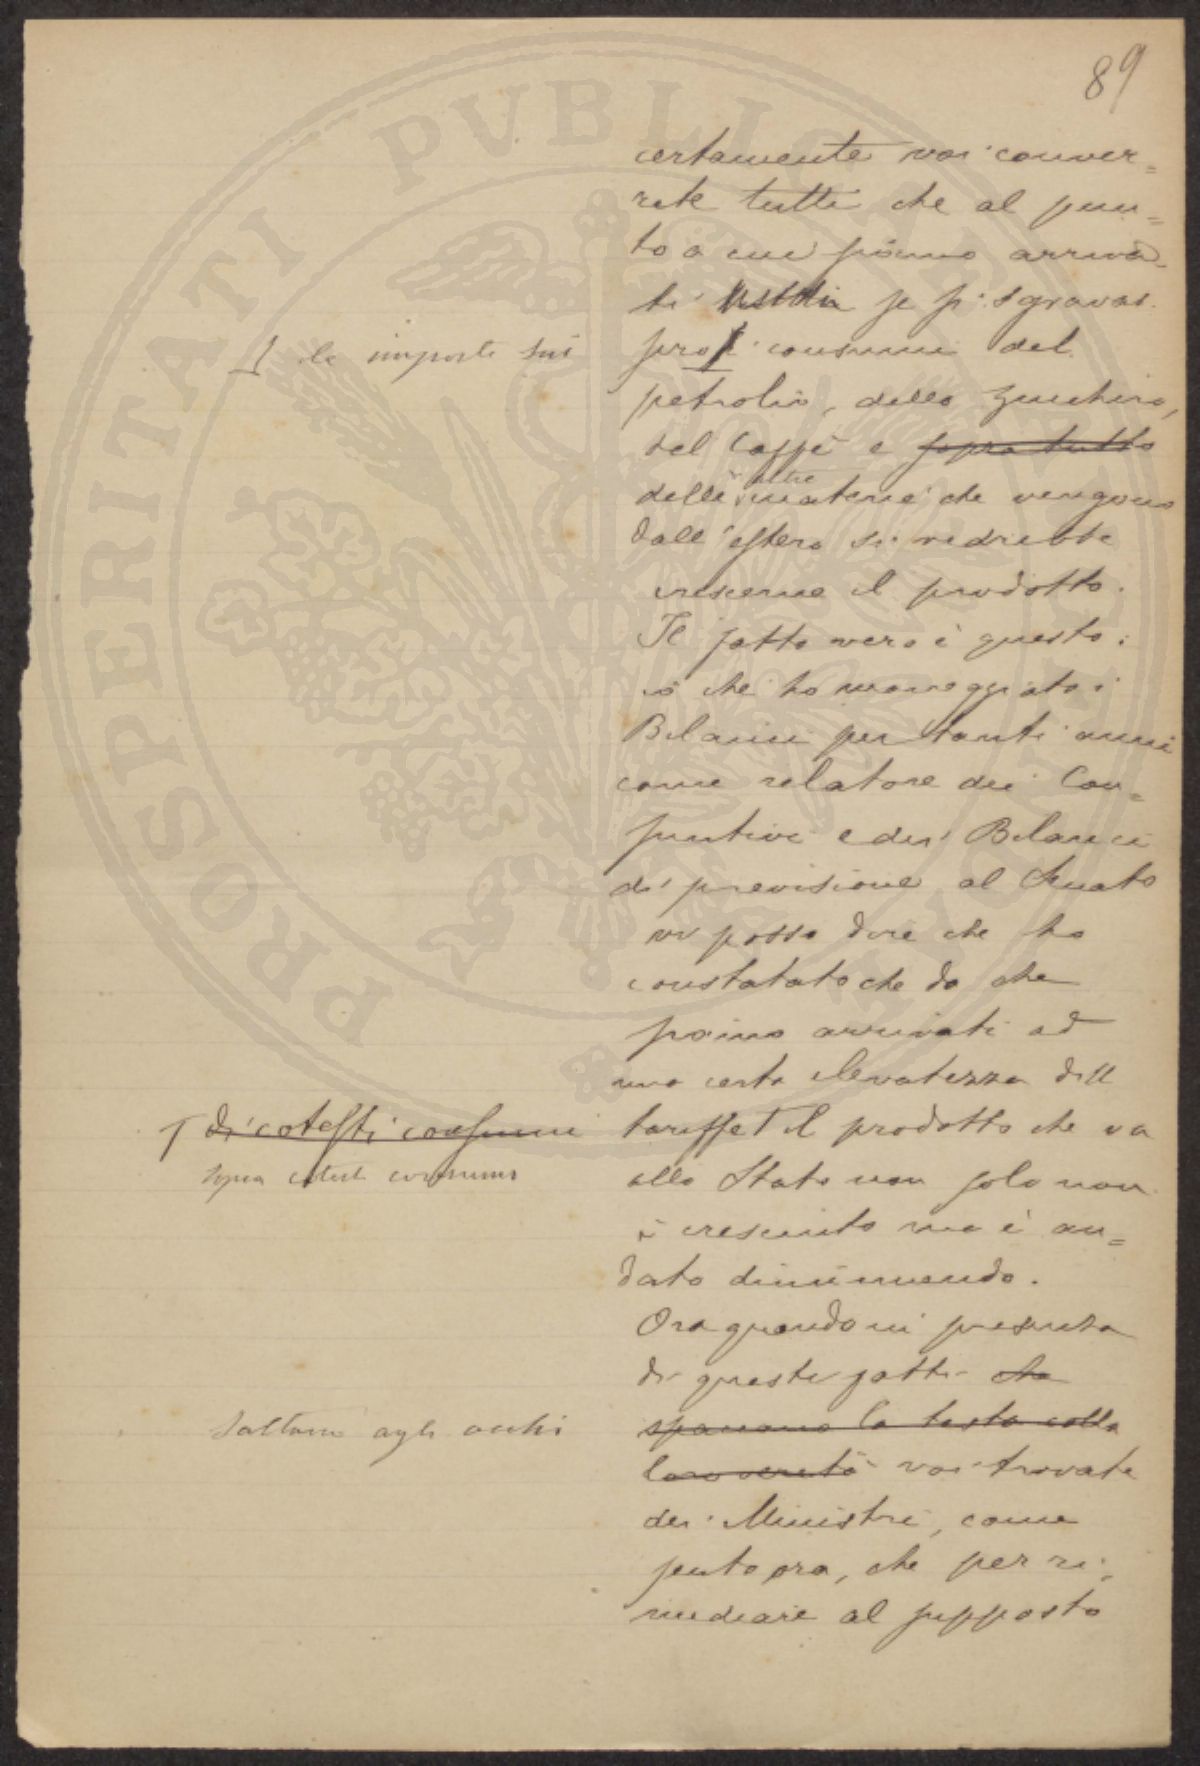 89
certamente voi conver=
rete tutti che al pun=
to a cui siamo arriva-
ti se si sgravas
sero i consumi del
⊥ le imposte sui
petrolio, dello zucchero,
del Caffè e sopra tutto
delle altre materie che vengono
dall'estero si vedrebbe
crescerne il prodotto.
Il fatto vero è questo:
io che ho maneggiato i
Bilanci per tanti anni
come relatore dei Con=
suntivi e dei Bilanci
di previsione al Senato
vi posso dire che ho
constatato che da che
siamo arrivati ad
una certa elevatezza di
tariffe T il prodotto che va
T di cotesti consumi
sopra cotesti consumi
allo Stato non solo non
è cresciuto ma è an=
dato diminuendo.
Ora quando in presenza
di questi fatti che
spaccano la testa colla
saltano agli occhi
loro verità voi trovate
dei Ministri, come
sento ora, che per ri=
mediare al supposto
PROSPERITATI PVBLICAE